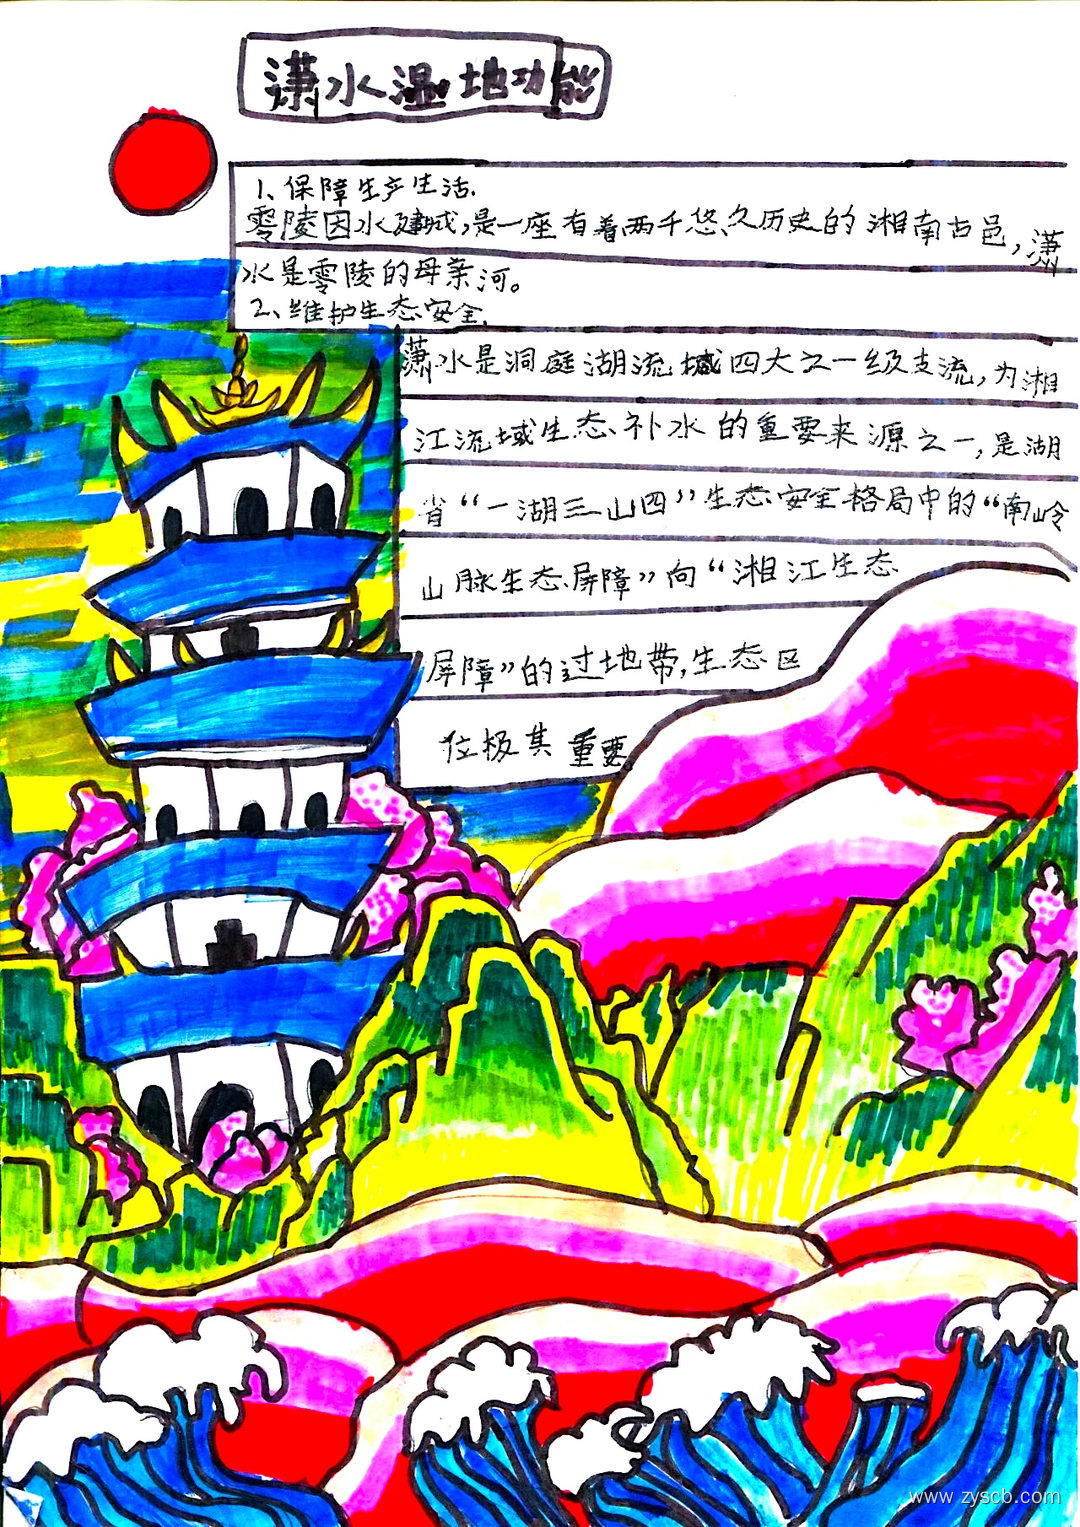 潇水湿地功能
1、保障生产生活.
零陵因水建城,是一座有着两千悠久历史的湘南古邑,潇
水是零陵的母亲河。
2、维护生态安全.
潇水是洞庭湖流域四大之一级支流,为湘
江流域生态补水的重要来源之一,是湖
省“一湖三山四”生态安全格局中的“南岭
山脉生态屏障”向“湘江生态
屏障”的过地带,生态区
位极其重要
www.zyscb.com